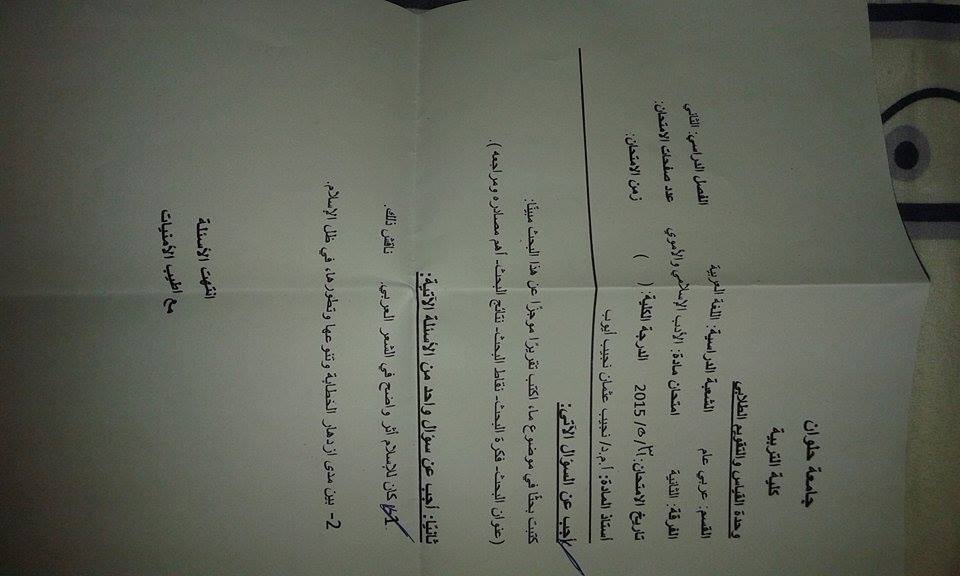 جامعة حلوان
كلية التربية
وحدة القياس والتقويم الطلابي
القسم: عربي عام الشعبة الدراسية: اللغة العربية الفصل الدراسي: الثاني
الفرقة: الثانية امتحان مادة: الأدب الإسلامي والأموي عدد صفحات الامتحان:
تاريخ الامتحان: /٥/ 2015 الدرجة الكلية: ( ) زمن الامتحان:
أستاذ المادة: أ.م.د/ نجيب عثمان نجيب أيوب
أجب عن السؤال الآتي:
كتبت بحثًا في موضوع ما، اكتب تقريرًا موجزًا عن هذا البحث مبينًا:
(عنوان البحث- فكرة البحث- نقاط البحث- نتائج البحث- أهم مصادره ومراجعه ).
ثانيًا: أجب عن سؤال واحد من الأسئلة الآتية:
1- كان للإسلام أثر واضح في الشعر العربي. ناقش ذلك.
2- بين مدى ازدهار الخطابة وتنوعها وتطورها، في ظل الإسلام.
انتهت الأسئلة
مع أطيب الأمنيات